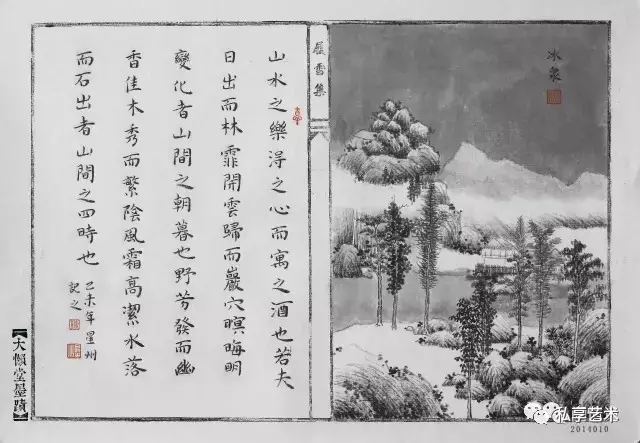 冰
履雪集
山水之樂淂之心而寓之酒也若夫
日出而林霏開雲歸而巖穴暝晦明
變化者山間之朝暮也野芳發而幽
香佳木秀而繁陰風霜高潔水落
而石出者山間之四時也
乙未年星州
記之
【大懶堂墨蹟】
私享艺术
2014010